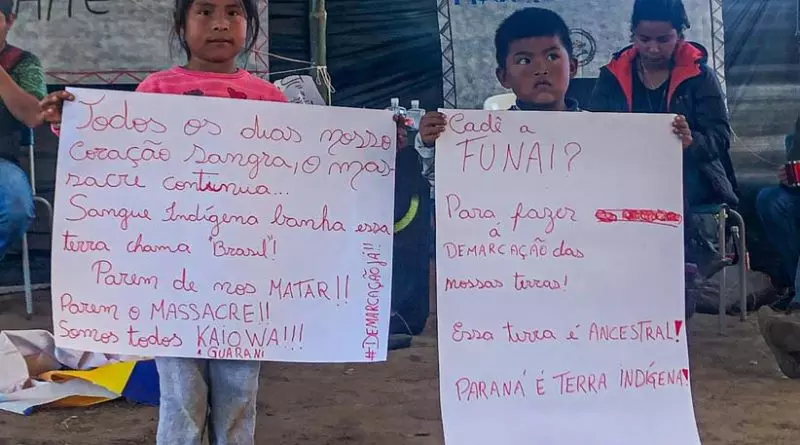 Todos os dias nosso
coração sangra, o mas-
sacre continua...
Sangue Indígena banha essa
terra chama "Brasil"!
Parem de nos MATAR!!
Parem o MASSACRE!!
Somos todos KAIOWA!!!
e GUARANI
#DEMARCAÇÃO JÁ!!
Cadê a
FUNAI?
Para fazer
á
DEMARCAÇÃO das
nossas terras!
Essa terra é ANCESTRAL!
PARANÁ É TERRA INDÍGENA!